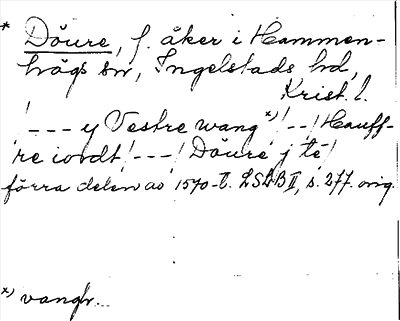 * Döure, f. åker i Hammen-
högs sn, Ingelstads hd,
Krist. l.
/--- y Vestre wang x)/--/Hauff-
re iordt/---/Döure j te/
förra delen av 1570-t. LSLB II, s. 277. orig.
x) vangr.